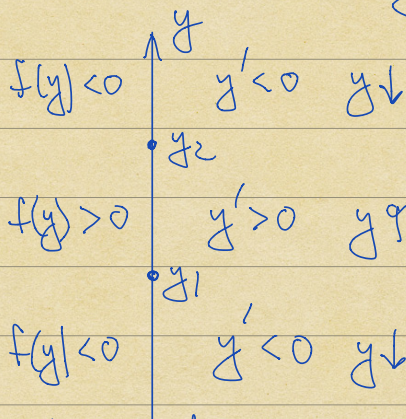 y
f(y) < 0 y' < 0 y ↓
y2
f(y) > 0 y' > 0 y
y1
f(y) < 0 y' < 0 y ↓